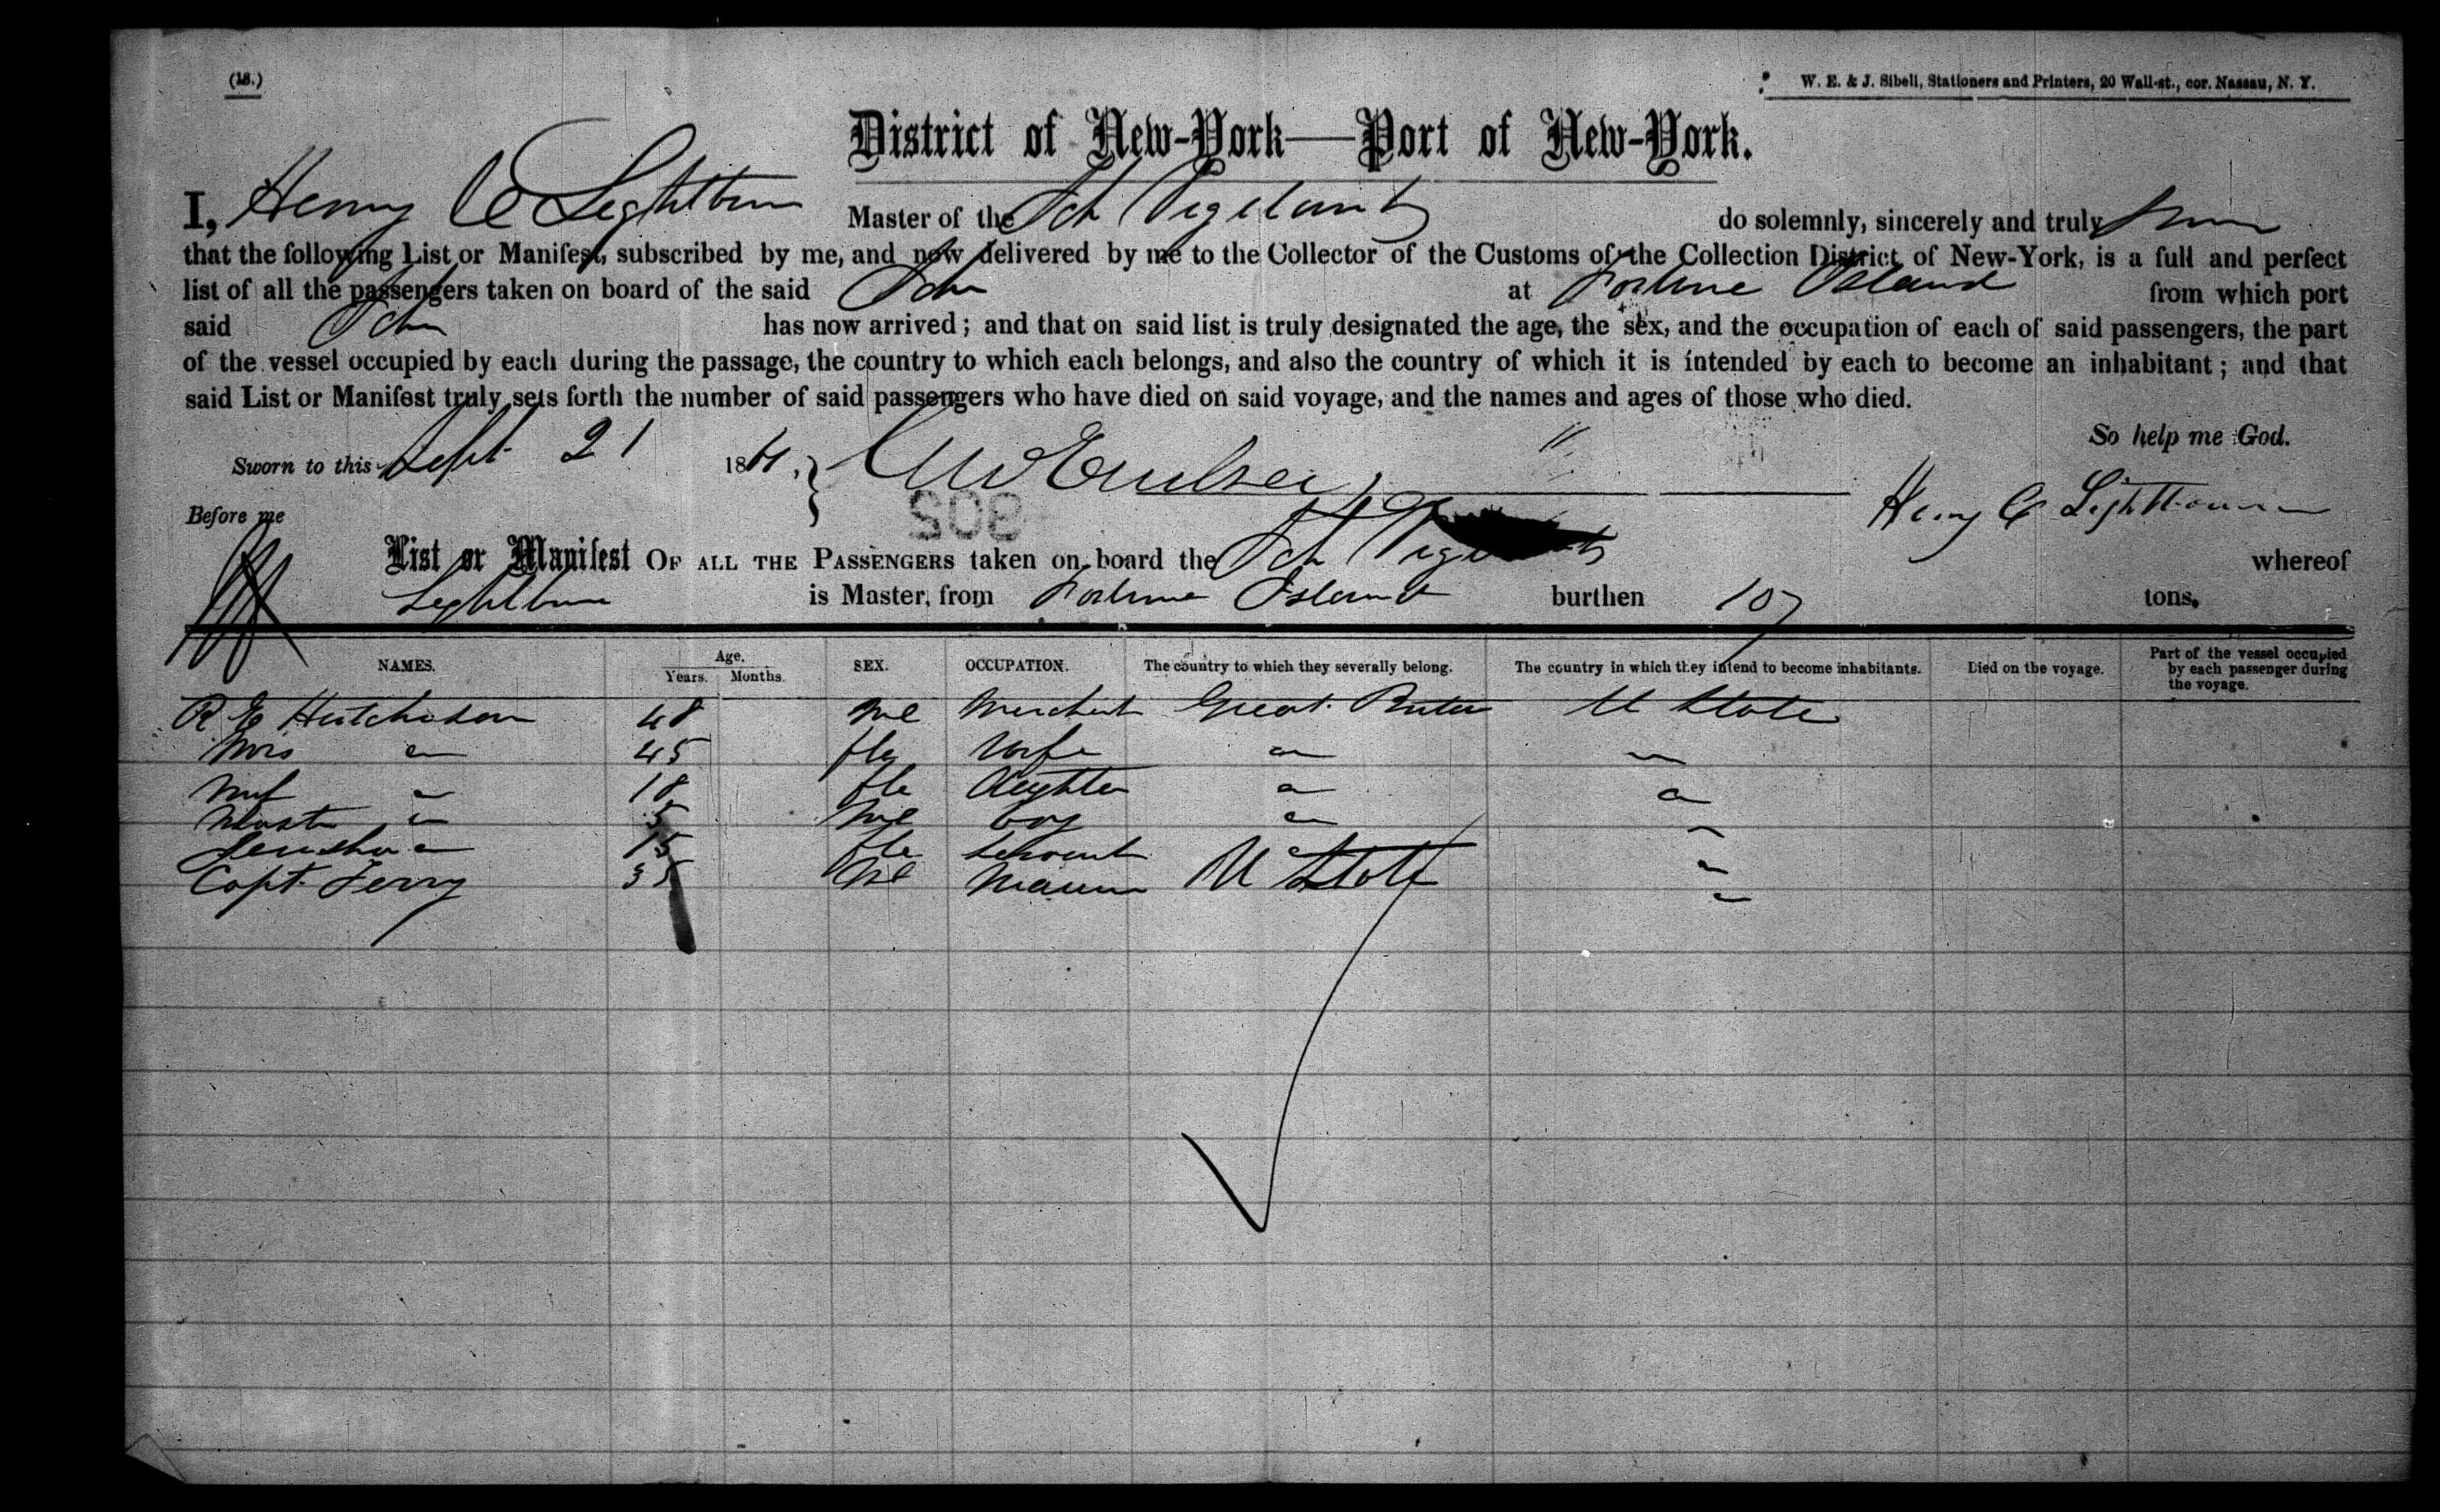 (18.)
W. E. & J. Sibell, Stationers and Printers, 20 Wall-st., cor. Nassau, N. Y.
District of New-York—Port of New-York.
I, Henry C Lightbourn Master of the Sch Vigilant do solemnly, sincerely and truly swear
that the following List or Manifest, subscribed by me, and now delivered by me to the Collector of the Customs of the Collection District of New-York, is a full and perfect
list of all the passengers taken on board of the said Schr at Fortune Island from which port
said Schr has now arrived; and that on said list is truly designated the age, the sex, and the occupation of each of said passengers, the part
of the vessel occupied by each during the passage, the country to which each belongs, and also the country of which it is intended by each to become an inhabitant; and that
said List or Manifest truly sets forth the number of said passengers who have died on said voyage, and the names and ages of those who died.
So help me God.
Sworn to this Sept 21 1861.
Henry C Lightbourn
Before me
List or Manifest OF ALL THE PASSENGERS taken on board the Sch Vigilant whereof
Lightbourn is Master, from Fortune Island burthen 107 tons.
NAMES. Age. Years. Months. SEX. OCCUPATION. The country to which they severally belong. The country in which they intend to become inhabitants. Died on the voyage. Part of the vessel occupied by each passenger during the voyage.
R E Hutchison 48 Mle Merchant Great Britain U State
Mrs " 45 fle Wife " "
Miss " 18 fle daughter " "
Mast " 5 Mle boy " "
" 15 fle Servant " "
Capt. Terry 35 Mle Marine U State "